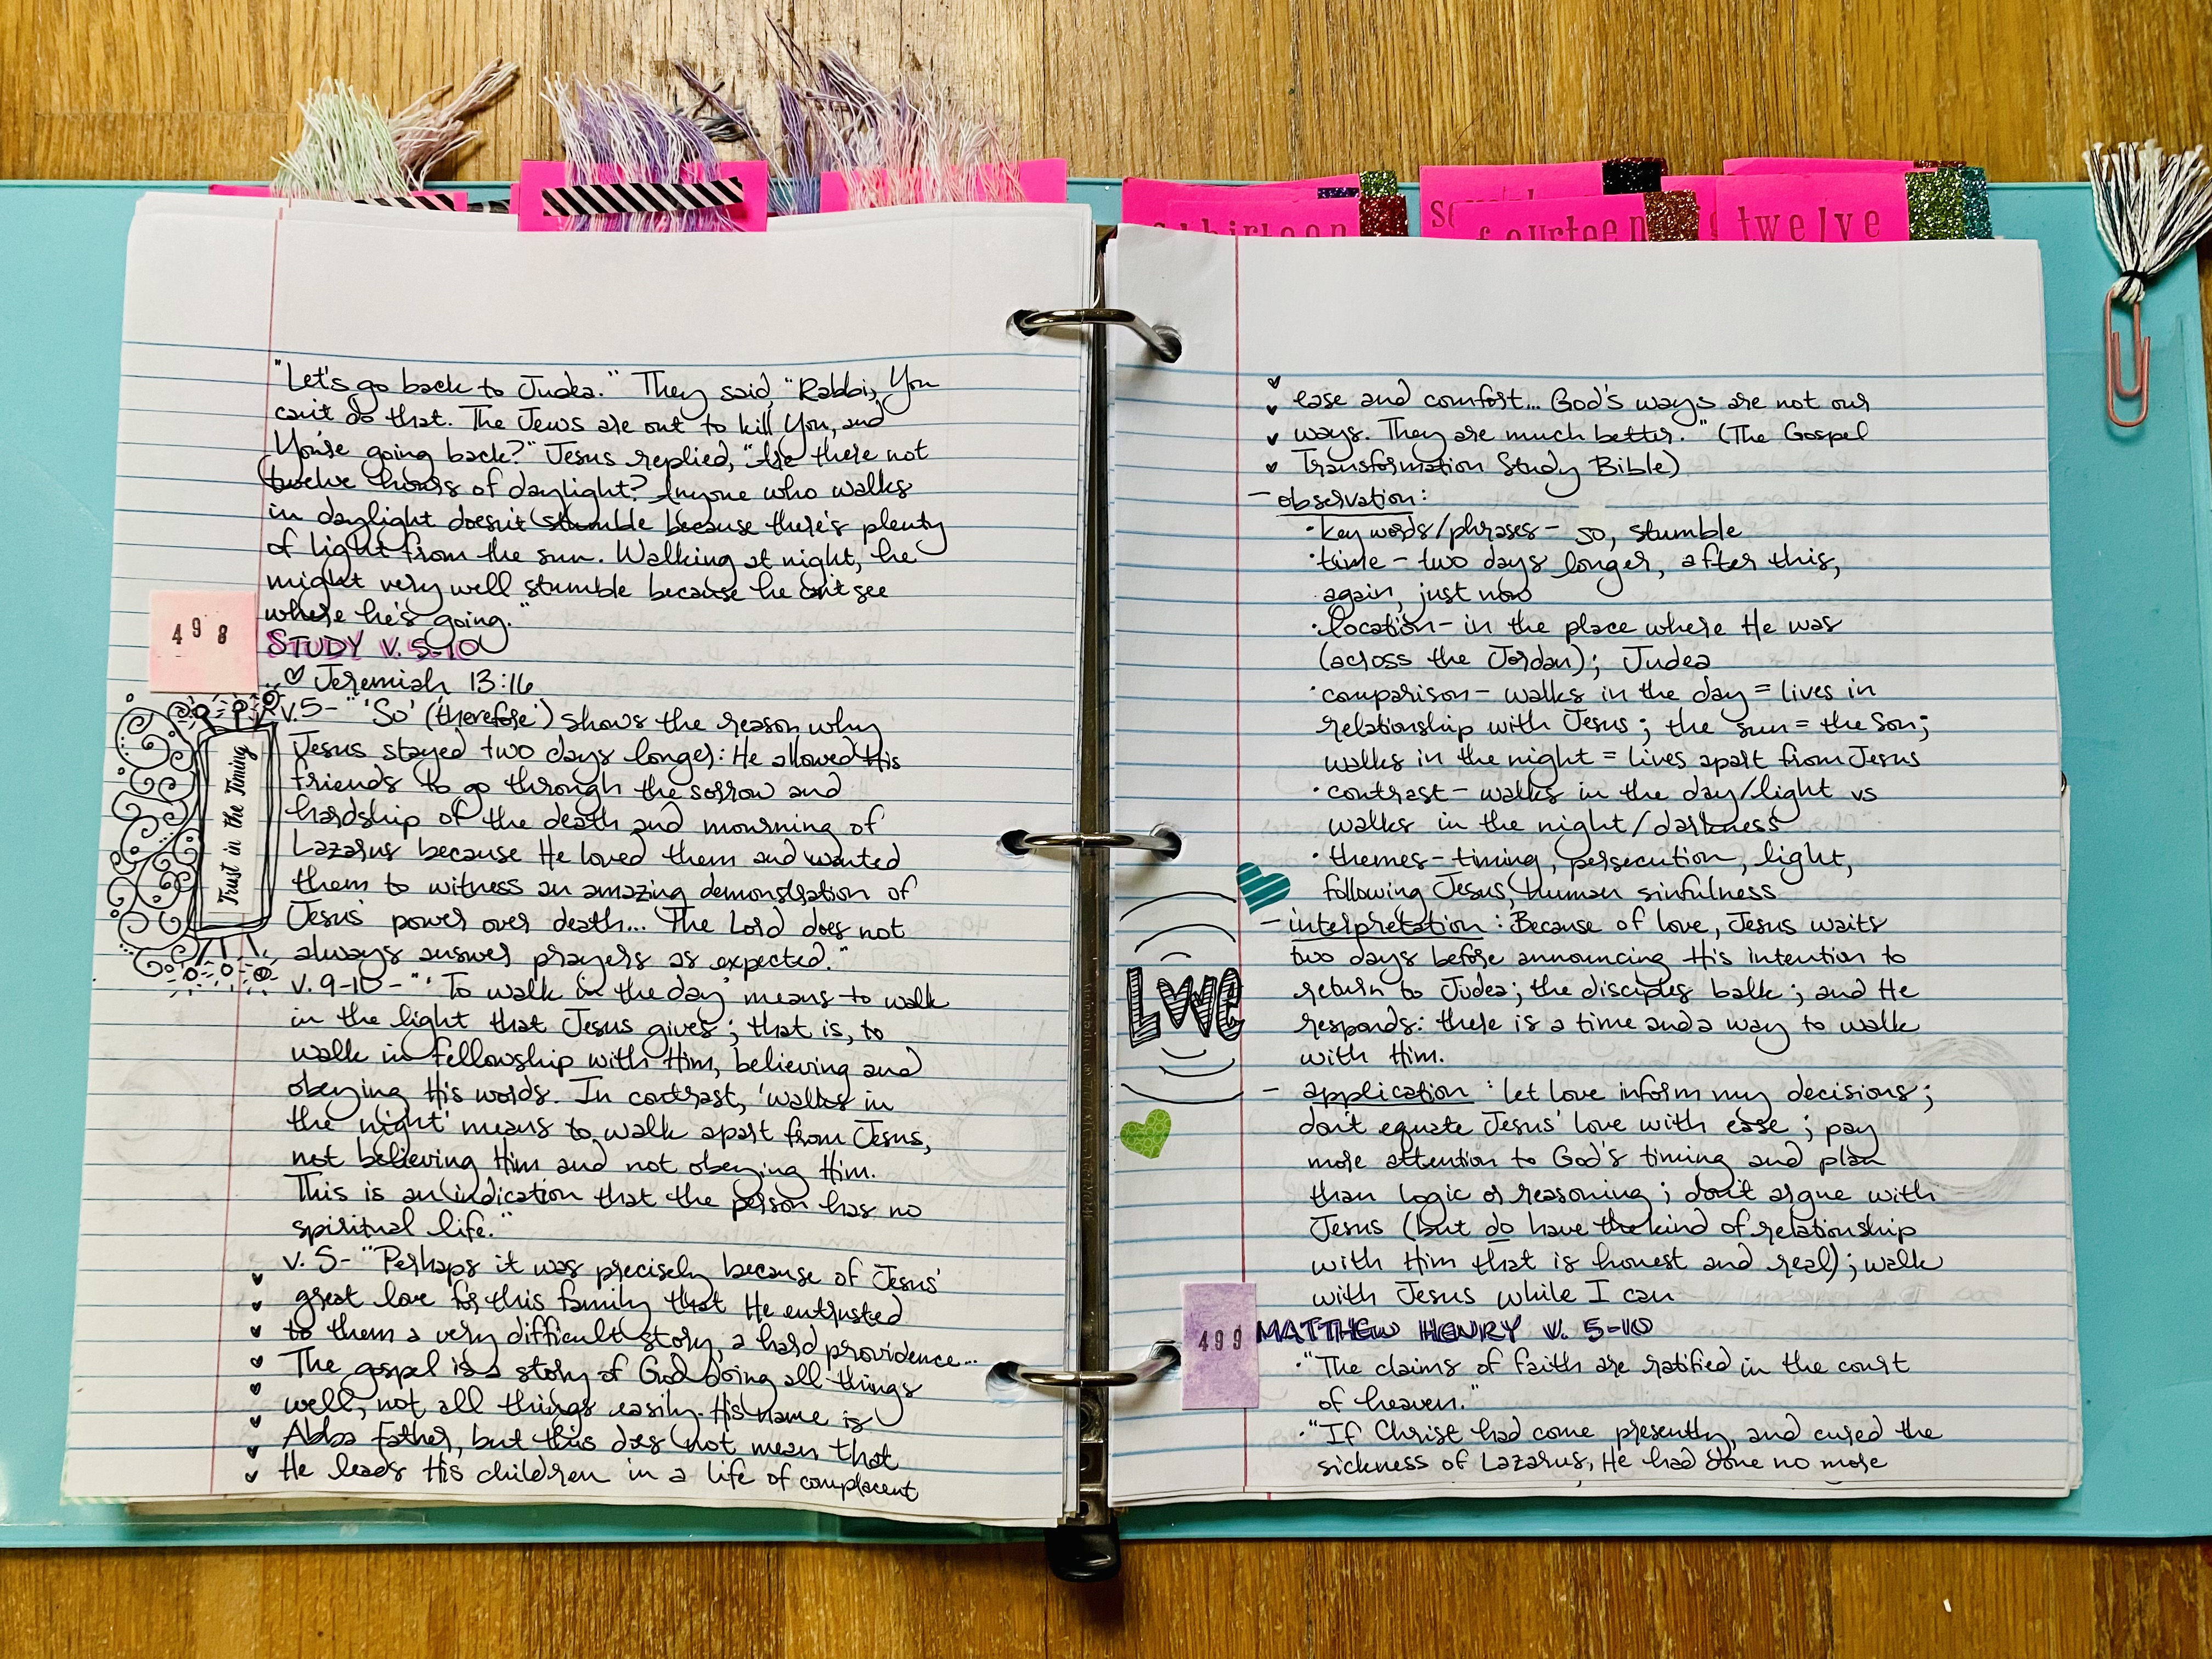 thirteen
fourteen
twelve
"Let's go back to Judea." They said, "Rabbi, You
can't do that. The Jews are out to kill You, and
You're going back?" Jesus replied, "Are there not
twelve hours of daylight? Anyone who walks
in daylight doesn't stumble because there's plenty
of light from the sun. Walking at night, he
might very well stumble because he can't see
where he's going."
498
STUDY V. 5-10
♡ Jeremiah 13:16
v.5- "'So' (therefore') shows the reason why
Jesus stayed two days longer: He allowed His
friends to go through the sorrow and
hardship of the death and mourning of
Lazarus because He loved them and wanted
them to witness an amazing demonstration of
Jesus' power over death... The Lord does not
always answer prayers as expected."
Trust in the Timing
v. 9-10- "'To walk in the day' means to walk
in the light that Jesus gives; that is, to
walk in fellowship with Him, believing and
obeying His words. In contrast, 'walks in
the night' means to walk apart from Jesus,
not believing Him and not obeying Him.
This is an indication that the person has no
spiritual life."
v. 5- "Perhaps it was precisely because of Jesus'
great love for this family that He entrusted
to them a very difficult story, a hard providence...
The gospel is a story of God doing all things
well, not all things easily. His name is
Abba Father, but this does not mean that
He leads His children in a life of complacent
ease and comfort... God's ways are not our
ways. They are much better." (The Gospel
Transformation Study Bible)
- observation:
· key words/phrases- so, stumble
· time - two days longer, after this,
again, just now
· location- in the place where He was
(across the Jordan); Judea
· comparison- walks in the day = lives in
relationship with Jesus; the sun = the Son;
walks in the night = lives apart from Jesus
· contrast- walks in the day/light vs
walks in the night/darkness
· themes- timing, persecution, light,
following Jesus, human sinfulness
- interpretation: Because of love, Jesus waits
two days before announcing His intention to
return to Judea; the disciples balk; and He
responds: there is a time and a way to walk
with Him.
LOVE
- application: let love inform my decisions;
don't equate Jesus' love with ease; pay
more attention to God's timing and plan
than logic or reasoning; don't argue with
Jesus (but do have the kind of relationship
with Him that is honest and real); walk
with Jesus while I can
499
MATTHEW HENRY V. 5-10
· "The claims of faith are ratified in the court
of heaven."
· "If Christ had come presently, and cured the
sickness of Lazarus, He had done no more